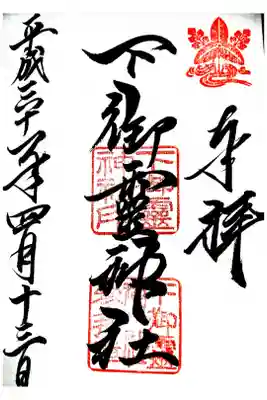 奉拝
下御霊神社
平成三十一年四月十三日